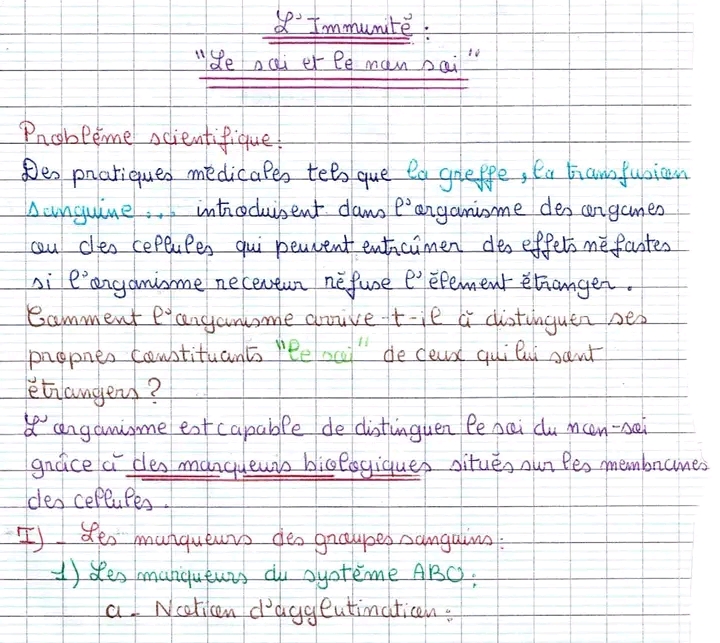 L'Immunité :
"Le soi et le non soi"
Problème scientifique :
Des pratiques médicales tels que la greffe, la transfusion
sanguine ... introduisent dans l'organisme des organes
ou des cellules qui peuvent entraîner des effets néfastes
si l'organisme receveur réfuse l'élement étranger.
Comment l'organisme arrive-t-il à distinguer ses
propres constituants "le soi" de ceux qui lui sont
étrangers ?
L'organisme est capable de distinguer le soi du non-soi
grâce à des marqueurs biologiques situés sur les membranes
des cellules.
I) - Les marqueurs des groupes sanguins :
1) Les marqueurs du système ABO :
a - Notion d'agglutination :